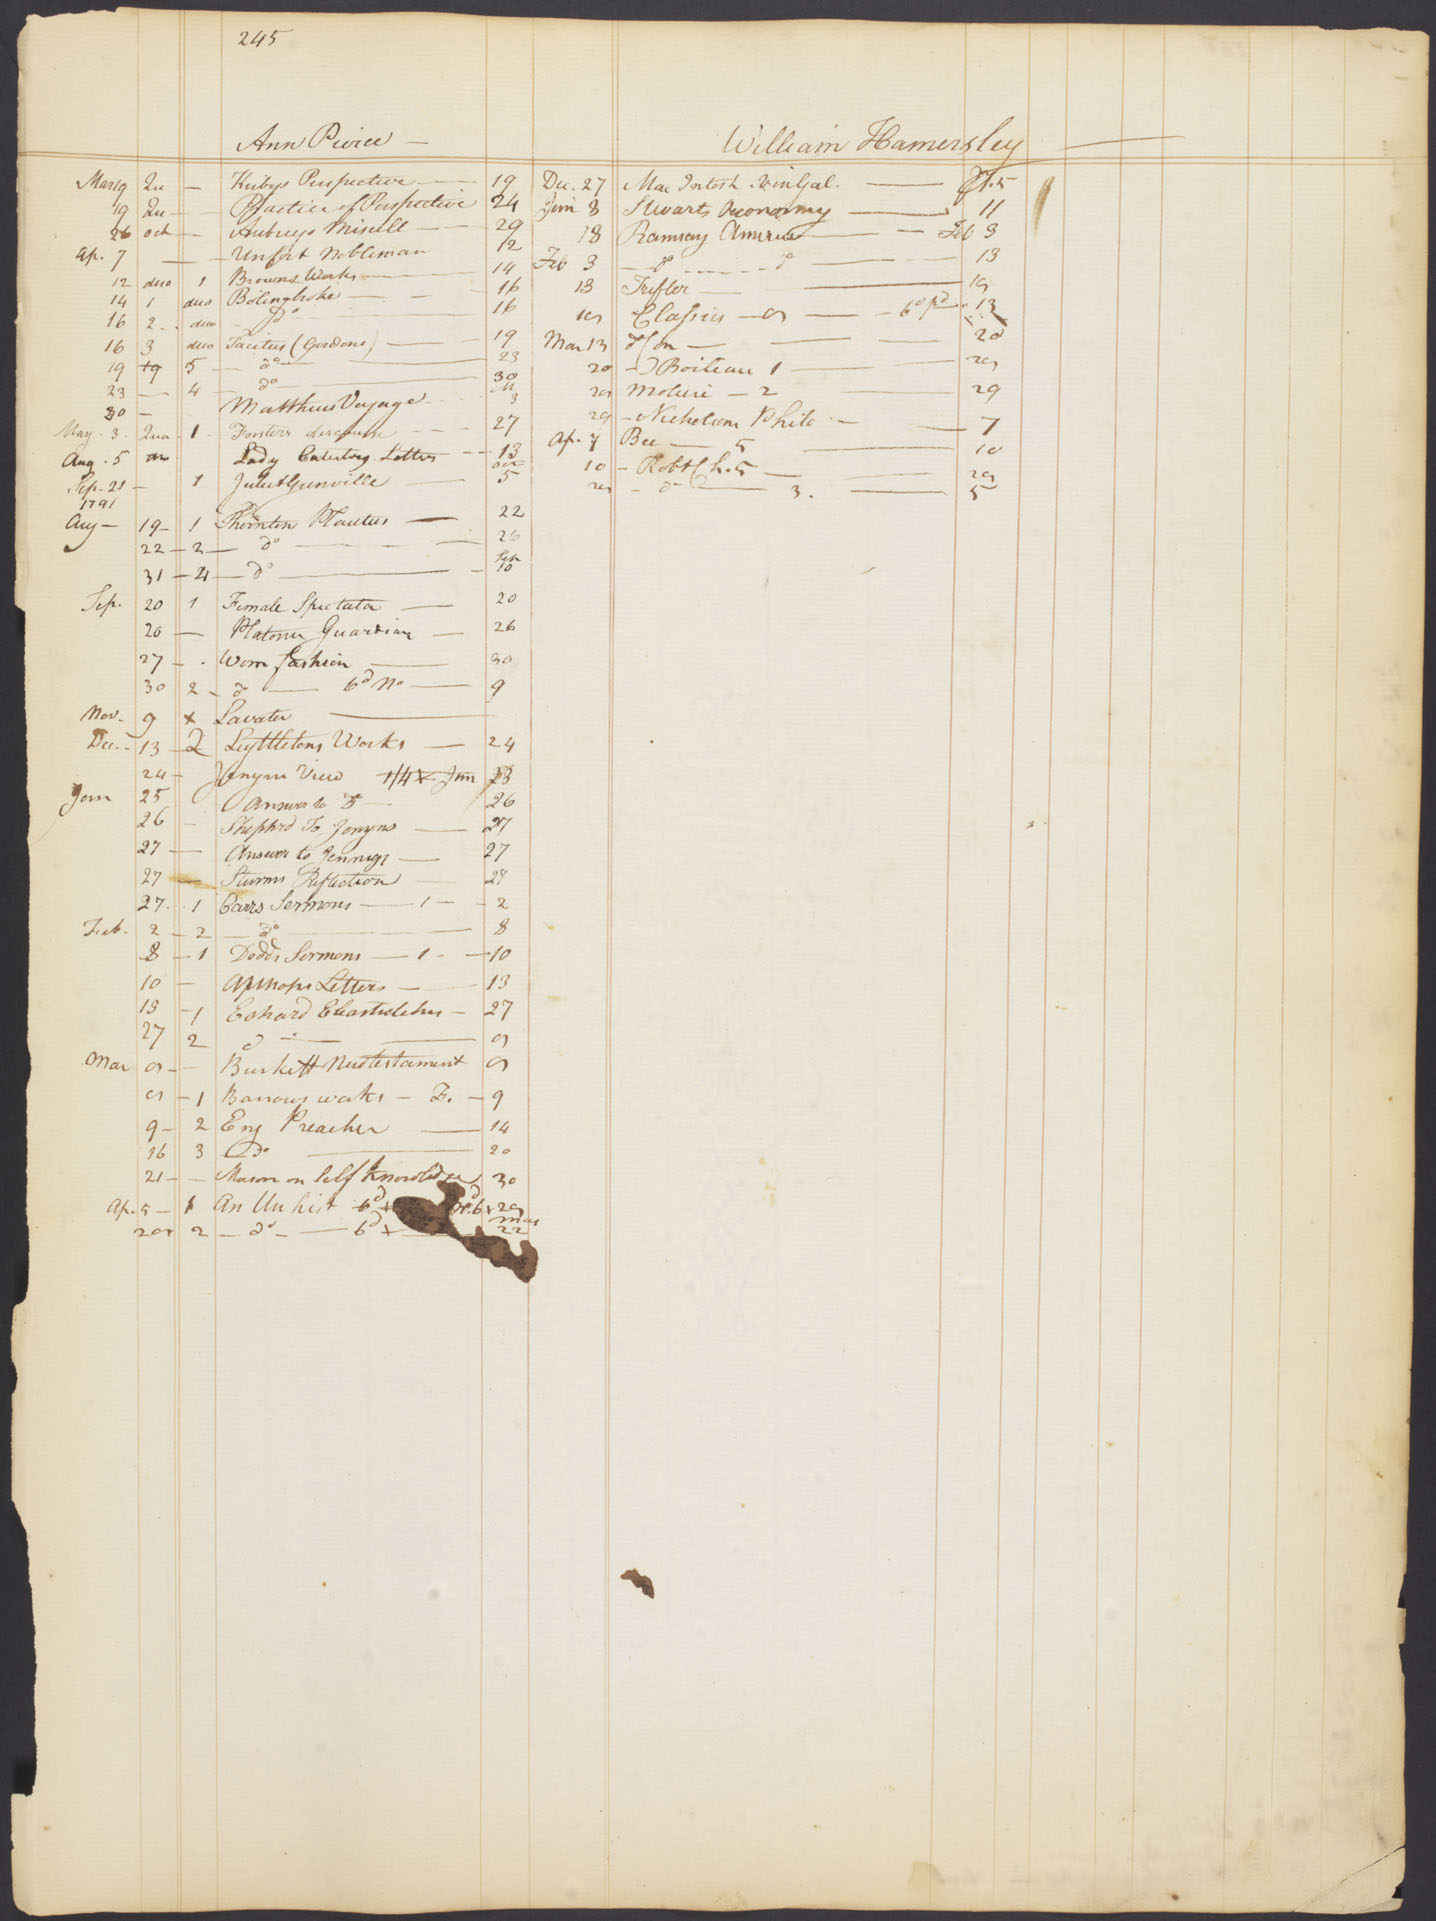 245
Ann Pierce —
Mar 19 Qu — Kirbys Perspective — 19
19 Qu — Practice of Perspective 24
26 oct — Aubreys Miscell — 29
Ap. 7 — Unfort Nobleman 12
12 duo 1 Browns Works — 14
14 1 duo Bolingbroke — 16
16 2 duo do — 16
16 3 duo Tacitus (Gordons) — 19
19 19 5 — do — 23
23 — 4 — do — 30
30 — Matthews Voyage M 3
May. 3. Qua 1 Forsters — 27
Aug. 5 Lady Letters — 13
Sep. 21 — 1 Juliet Grenville — oct 5
1791
Aug — 19 — 1 Thornton Plautus — 22
22 — 2 — do — 26
31 — 4 — do — Sep 10
Sep. 20 1 Female Spectator — 20
20 — Platonic Guardian — 26
27 — . Worn fashion — 30
30 2 — do — 6d No — 9
Nov. 9 x Lavater —
Dec. 13 2 Lyttletons Works — 24
24 — Jenyns View 1/4 x Jan 23
Jan 25 Answer to do — 26
26 — Shepherd To Jenyns — 27
27 — Answer to Jennyns — 27
27 — Sturms Reflection — 27
27. 1 Carrs Sermons — 1 — 2
Feb. 2 — 2 — do — 8
8 — 1 Dodds Sermons — 1 — 10
10 — Apthops Letters — 13
13 — 1 Echard Eclesiastical — 27
27 2 do —
Mar — Burkett New testament
— 1 Barrows works — F. — 9
9 — 2 Eng Preacher — 14
16 3 do — 20
21 — — Mason on Self Knowledge 30
Ap. 5 — 1 An Un hist 6d
2 — do — 6d x — 22
William Hamersley —
Dec. 27 Mac Intosh. Vin Gal. — 5
Jan 8 Stuarts Oeconomy — 11
18 Ramsay America — Feb 3
Feb 3 — do — do — 13
13 Trifler —
Classics — 6d pd — 13
Mar 13 — 20
20 — Boileau 1 —
Moliere — 2 — 29
29 — Nicholson Philo — 7
Ap. 7 Bee — 5 — 10
10 — Robt Ch. 5 —
— do — 3. — 5